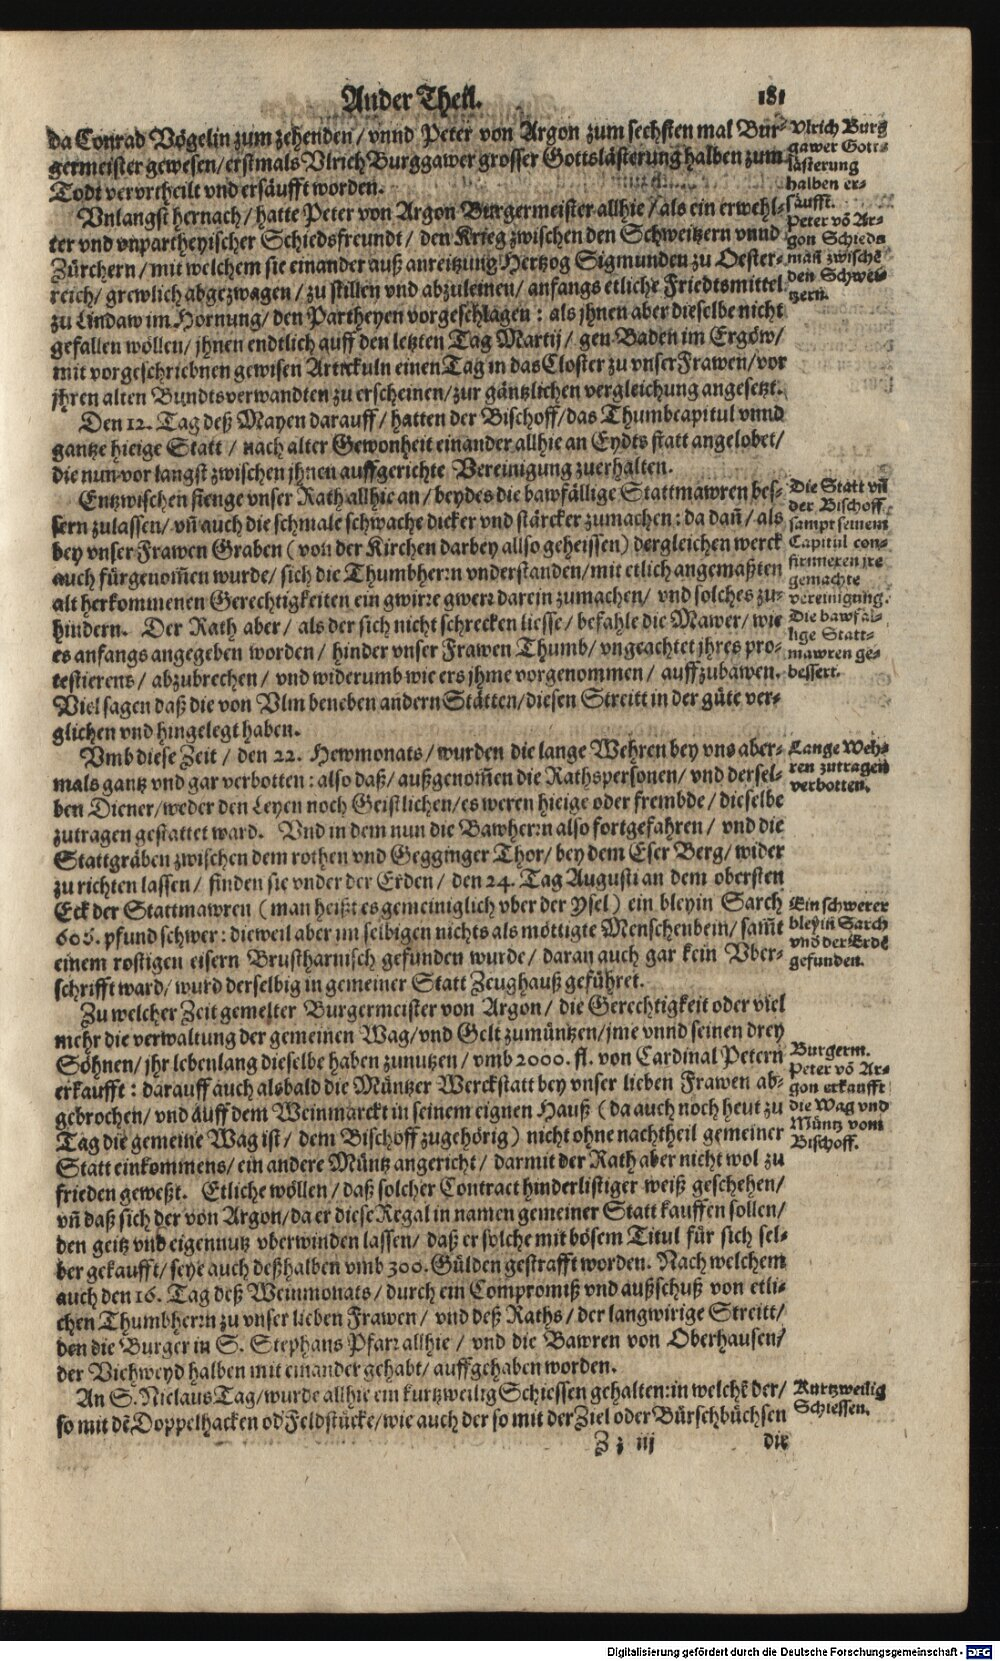 Ander Theil.
181
da Conrad Vögelin zum zehenden / vnnd Peter von Argon zum sechsten mal Bur-
germeister gewesen / erstmals Vlrich Burggawer grosser Gottslästerung halben zum
Todt vervrtheilt vnd ersäufft worden.
Vnlangst hernach / hatte Peter von Argon Burgermeister allhie / als ein erwehl-
ter vnd vnpartheyischer Schiedsfreundt / den Krieg zwischen den Schweitzern vnnd
Zürchern / mit welchem sie einander auß anreitzung Hertzog Sigmunden zu Oester-
reich / grewlich abgezwagen / zu stillen vnd abzuleinen / anfangs etliche Friedtsmittel
zu Lindaw im Hornung / den Partheyen vorgeschlagen : als jhnen aber dieselbe nicht
gefallen wöllen / jhnen endtlich auff den letzten Tag Martij / gen Baden im Ergöw /
mit vorgeschriebnen gewisen Artickuln einen Tag in das Closter zu vnser Frawen / vor
jhren alten Bundtsverwandten zu erscheinen / zur gäntzlichen vergleichung angesetzt.
Den 12. Tag deß Mayen darauff / hatten der Bischoff / das Thumbcapitul vnnd
gantze hieige Statt / nach alter Gewonheit einander allhie an Eydts statt angelobet /
die nun vor langst zwischen jhnen auffgerichte Vereinigung zuerhalten.
Entzwischen fienge vnser Rath allhie an / beydes die bawfällige Stattmawren bes-
sern zulassen / vñ auch die schmale schwache dicker vnd stärcker zumachen : da dañ / als
bey vnser Frawen Graben ( von der Kirchen darbey allso geheissen ) dergleichen werck
auch fürgenom̃en wurde / sich die Thumbherꝛn vnderstanden / mit etlich angemaßten
alt herkommenen Gerechtigkeiten ein gwirꝛe gwerꝛ darein zumachen / vnd solches zu-
hindern. Der Rath aber / als der sich nicht schrecken liesse / befahle die Mawer / wie
es anfangs angegeben worden / hinder vnser Frawen Thumb / vngeachtet jhres pro-
testierens / abzubrechen / vnd widerumb wie ers jhme vorgenommen / auffzubawen.
Viel sagen daß die von Vlm beneben andern Stätten / diesen Streitt in der güte ver-
glichen vnd hingelegt haben.
Vmb diese Zeit / den 22. Hewmonats / wurden die lange Wehren bey vns aber-
mals gantz vnd gar verbotten : also daß / außgenom̃en die Rathspersonen / vnd dersel-
ben Diener / weder den Leyen noch Geistlichen / es weren hieige oder frembde / dieselbe
zutragen gestattet ward. Vnd in dem nun die Bawherꝛn also fortgefahren / vnd die
Stattgräben zwischen dem rothen vnd Gegginger Thor / bey dem Eser Berg / wider
zu richten lassen / finden sie vnder der Erden / den 24. Tag Augusti an dem obersten
Eck der Stattmawren ( man heißt es gemeiniglich vber der Ysel ) ein bleyin Sarch
605. pfund schwer : dieweil aber im selbigen nichts als möttigte Menschenbein / sam̃t
einem rostigen eisern Brustharnisch gefunden wurde / daran auch gar kein Vber-
schrifft ward / wurd derselbig in gemeiner Statt Zeughauß geführet.
Zu welcher Zeit gemelter Burgermeister von Argon / die Gerechtigkeit oder viel
mehr die verwaltung der gemeinen Wag / vnd Gelt zumüntzen / jme vnnd seinen drey
Söhnen / jhr lebenlang dieselbe haben zunutzen / vmb 2000. fl. von Cardinal Petern
erkaufft : darauff auch alsbald die Müntzer Werckstatt bey vnser lieben Frawen ab-
gebrochen / vnd auff dem Weinmarckt in seinem eignen Hauß ( da auch noch heut zu
Tag die gemeine Wag ist / dem Bischoff zugehörig ) nicht ohne nachtheil gemeiner
Statt einkommens / ein andere Müntz angericht / darmit der Rath aber nicht wol zu
frieden geweßt. Etliche wöllen / daß solcher Contract hinderlistiger weiß geschehen /
vñ daß sich der von Argon / da er diese Regal in namen gemeiner Statt kauffen sollen /
den geitz vnd eigennutz vberwinden lassen / daß er solche mit bösem Titul für sich sel-
ber gekaufft / seye auch deßhalben vmb 300. Gülden gestrafft worden. Nach welchem
auch den 16. Tag deß Weinmonats / durch ein Compromiß vnd außschuß von etli-
chen Thumbherꝛn zu vnser lieben Frawen / vnd deß Raths / der langwirige Streitt /
den die Burger in S. Stephans Pfarꝛ allhie / vnd die Bawren von Oberhausen /
der Viehweyd halben mit einander gehabt / auffgehaben worden.
An S. Niclaus Tag / wurde allhie ein kurtzweilig Schiessen gehalten : in welchē der /
so mit dē Doppelhacken od' Feldstücke / wie auch der so mit der Ziel oder Bürschbüchsen
Z z iij
die
Vlrich Burg
gawer Gott-
lästerung
halben er-
säufft.
Peter võ Ar-
gon Schieds
mañ zwischē
den Schwei-
tzern.
Die Statt vñ
der Bischoff
sampt seinem
Capitul con-
firmieren jre
gemachte
vereinigung.
Die bawfäl-
lige Statt-
mawren ge-
bessert.
Lange Weh-
ren zutragen
verbotten.
Ein schwerer
bleyin Sarch
vnd der Erdē
gefunden.
Burgerm.
Peter võ Ar-
gon erkaufft
die Wag vnd
Müntz vom
Bischoff.
Kurtzweilig
Schiessen.
Digitalisierung gefördert durch die Deutsche Forschungsgemeinschaft - DFG